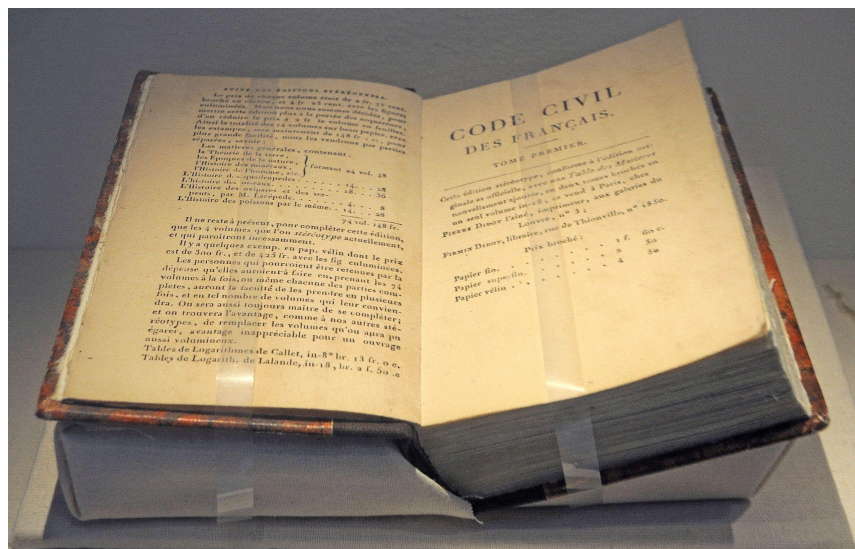 SUITE DES ÉDITIONS STÉRÉOTYPES.
Le prix de chaque volume étoit de 2 fr. 75 cent.
broché en carton, et 4 fr 25 cent. avec les figures
enluminées. Mais nous nous sommes décidés, pour
mettre cette édition plus à la portée des acquéreurs,
d'en réduire le prix à 2 fr. le volume en feuilles.
Ainsi la totalité des 74 volumes sur beau papier, avec
les estampes, sera maintenant de 148 fr.; et, pour
plus grande facilité, nous les vendrons par parties
séparées, savoir:
Les matieres générales, contenant:
la Théorie de la terre,
les Époques de la nature,
l'Histoire des minéraux,
l'Histoire de l'homme, etc. } formant 24 vol. 48
L'Histoire des quadrupedes. . . . . . 14. . . 28
L'Histoire des oiseaux. . . . . . 18. . . 36
L'Histoire des ovipares et des ser-
pents, par M. Lacépede. . . . . 4. . . 8
L'Histoire des poissons par le même. . 14. . . 28
74 vol. 148 fr.
Il ne reste à présent, pour compléter cette édition,
que les 4 volumes que l'on stéréotype actuellement,
et qui paroîtront incessamment.
Il y a quelques exemp. en pap. vélin dont le prix
est de 300 fr., et de 425 fr. avec les fig. enluminées.
Les personnes qui pourroient être retenues par la
dépense qu'elles auroient à faire en prenant les 74
volumes à la fois, ou même chacune des parties com-
pletes, auront la faculté de les prendre en plusieurs
fois, et en tel nombre de volumes qui leur convien-
dra. On sera aussi toujours maître de se compléter;
et on trouvera l'avantage, comme à nos autres sté-
réotypes, de remplacer les volumes qu'on aura pu
égarer, avantage inappréciable pour un ouvrage
aussi volumineux.
Tables de Logarithmes de Callet, in-8° br. 13 fr. 0 c.
Tables de Logarith. de Lalande, in-18, br. 2 f. 50 c
CODE CIVIL
DES FRANÇAIS.
TOME PREMIER.
Cette édition stéréotype, conforme à l'édition ori-
ginale et officielle, avec une Table des Matieres
nouvellement ajoutée, en deux tomes brochés en
un seul volume in-18, se vend à Paris, chez
PIERRE DIDOT l'aîné, imprimeur, aux galeries du
Louvre, n° 3;
FIRMIN DIDOT, libraire, rue de Thionville, n° 1850.
Prix broché:
Papier fin. . . . . . . 1 f. 60 c.
Papier superfin. . . . . . 2 50
Papier vélin . . . . . . 4 50